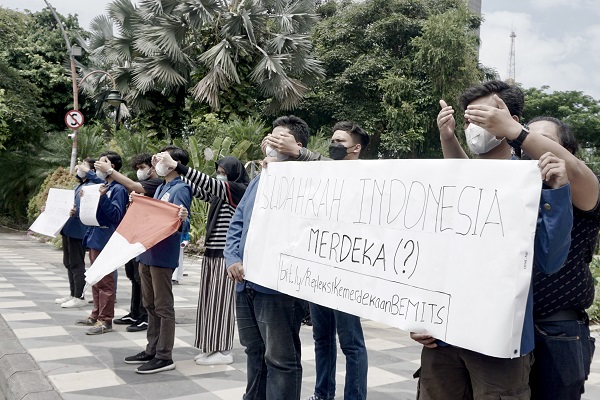 SUDAHKAH INDONESIA
MERDEKA (?)
bit.ly/RefleksiKemerdekaanBEMITS